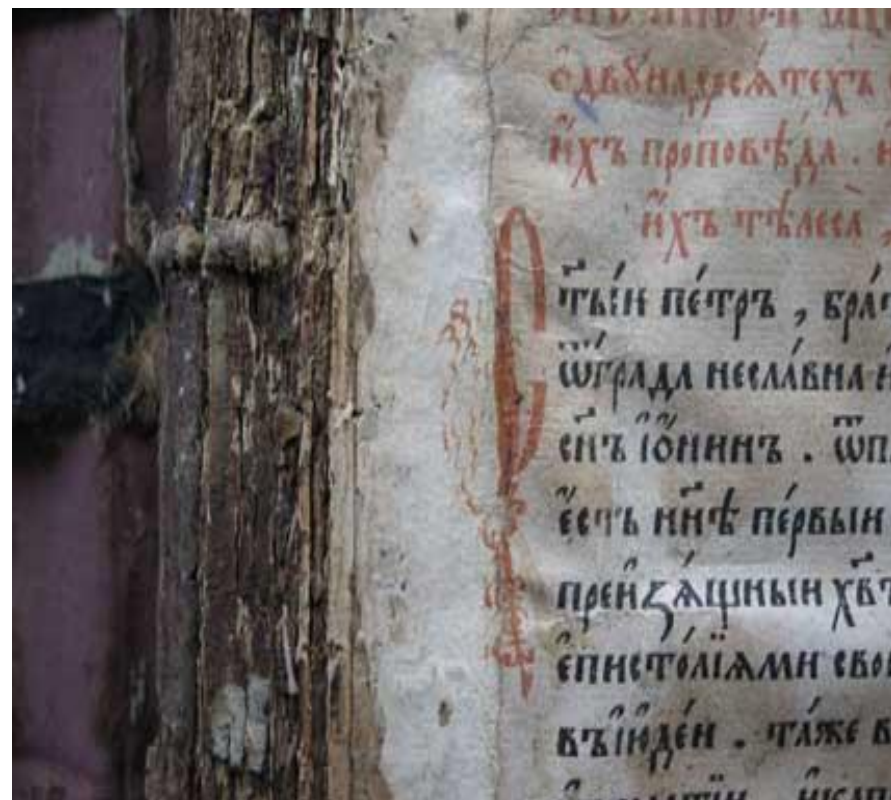 ѻ двꙋнадесѧ́техъ
и҆́хъ проповѣ́да . и
и҆́хъ тѣлеса̀ ,
С ты́и пе́тръ , бра́т
ѿ гра́да несла́вна и
сн҃ъ і҆о́нинъ . ѿп
є҆́сть нн҃ѣ пе́рвыи
преиꙁѧ́щныи хв҃
є҆писто́лїѧми сво
въ і҆ꙋде́и . та́же в